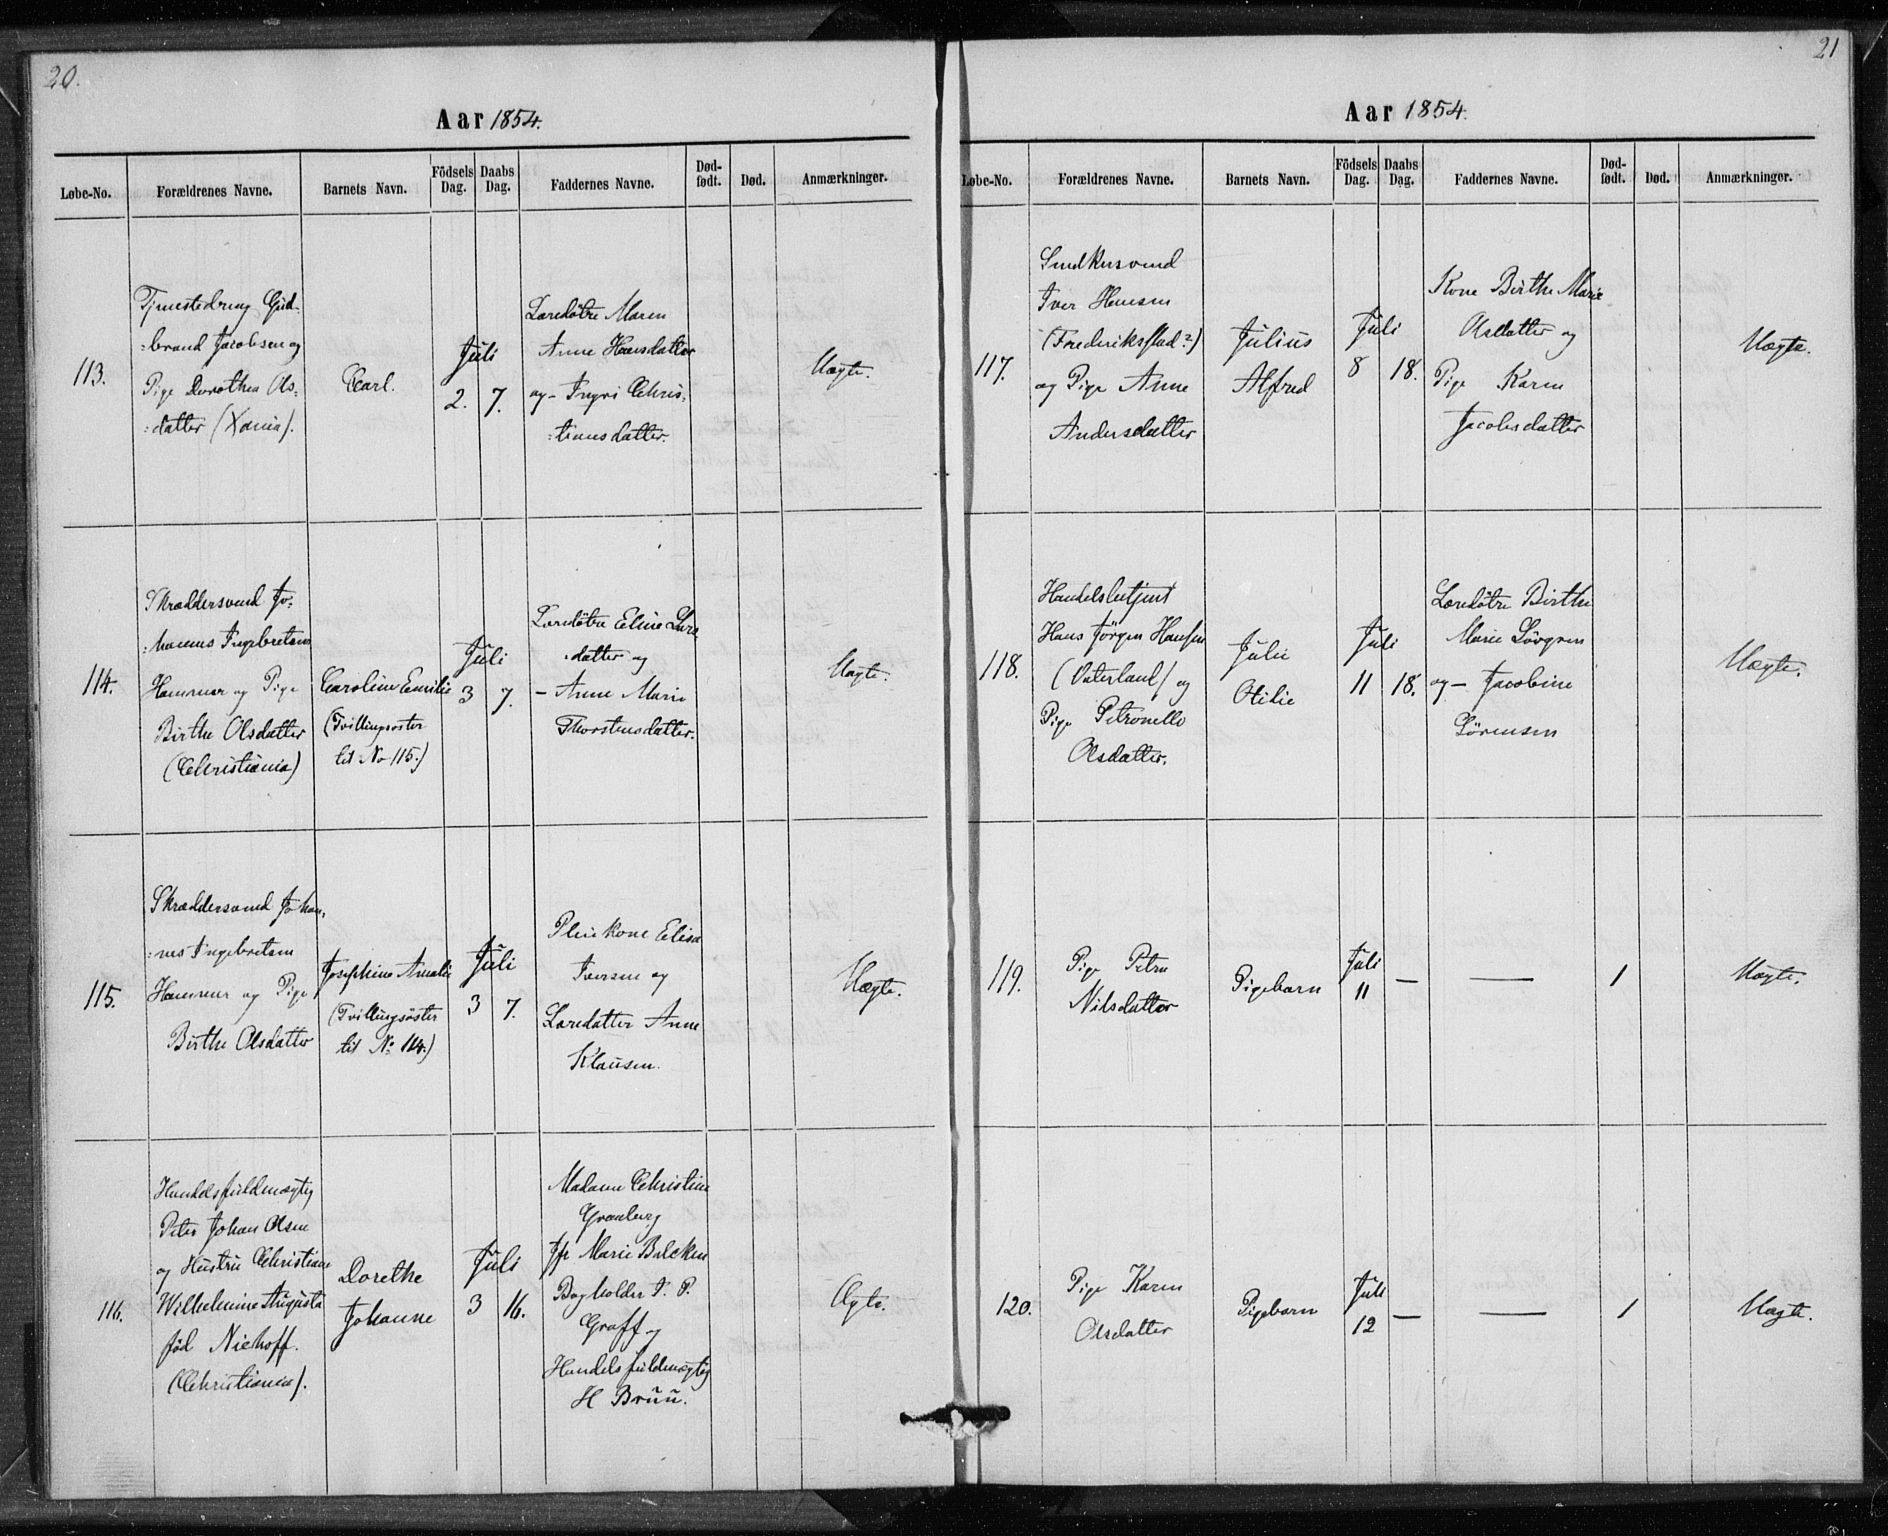 20.
Aar 1854.
Løbe-No. Forældrenes Navne. Barnets Navn. Födsels Dag. Daabs Dag. Faddernes Navne. Død-født. Død. Anmærkninger.
113.
Tjenestedreng Gud-
:brand Jacobsen og
Pige Dorothea Ols-
:datter (Xania).
Carl.
Juli
2. 7.
Læredøtre Maren
Anne Hansdatter
og - Ingri Chris-
:tiansdatter.
Uægte.
114.
Skræddersvend Jo-
:hannes Ingebretsen
Hammer og Pige
Birthe Olsdatter
(Christiania)
Caroline Emilie
(Tvillingsøster
til No 115.)
Juli
3 7.
Læredøtre Eline Lars
:datter og
- Anne Marie
Thorstensdatter.
Uægte.
115.
Skræddersvend Johan-
:nes Ingebretsen
Hammer og Pige
Birthe Olsdatter
Josephine Amalie
(Tvillingsøster
til No 114.)
Juli
3 7.
Pleiekone Elisa
Iversen og
Læredatter Anne
Klausen.
Uægte.
116.
Handelsfuldmægtig
Peter Johan Olsen
og Hustru Christiane
Wilhelmine Augusta
fød Niehoff.
(Christiania).
Dorethe
Johanne
Juli
3 16.
Madame Christine
Granberg
Jfr Marie Balcken
Bogholder I. P.
Graff og
Handelsfuldmægtig
H Bruu.
Ægte.
21
Aar 1854.
Løbe-No. Forældrenes Navne. Barnets Navn. Födsels Dag. Daabs Dag. Faddernes Navne. Død-født. Død. Anmærkninger.
117.
Snedkersvend
Iver Hansen
(Frederiksstad?)
og Pige Anne
Andersdatter
Julius
Alfred
Juli
8 18.
Kone Birthe Marie
Olsdatter og
Pige Karen
Jacobsdatter
Uægte.
118.
Handelsbetjent
Hans Jörgen Hansen
(Vaterland) og
Pige Petronelle
Olsdatter.
Julie
Otilie
Juli
11 18.
Læredøtre Birthe
Marie Lövgren
og - Jacobine
Sörensen
Uægte.
119.
Pige Petra
Nilsdatter
Pigebarn
Juli
11
— — 1
Uægte.
120.
Pige Karen
Olsdatter
Pigebarn
Juli
12
— — 1
Uægte.